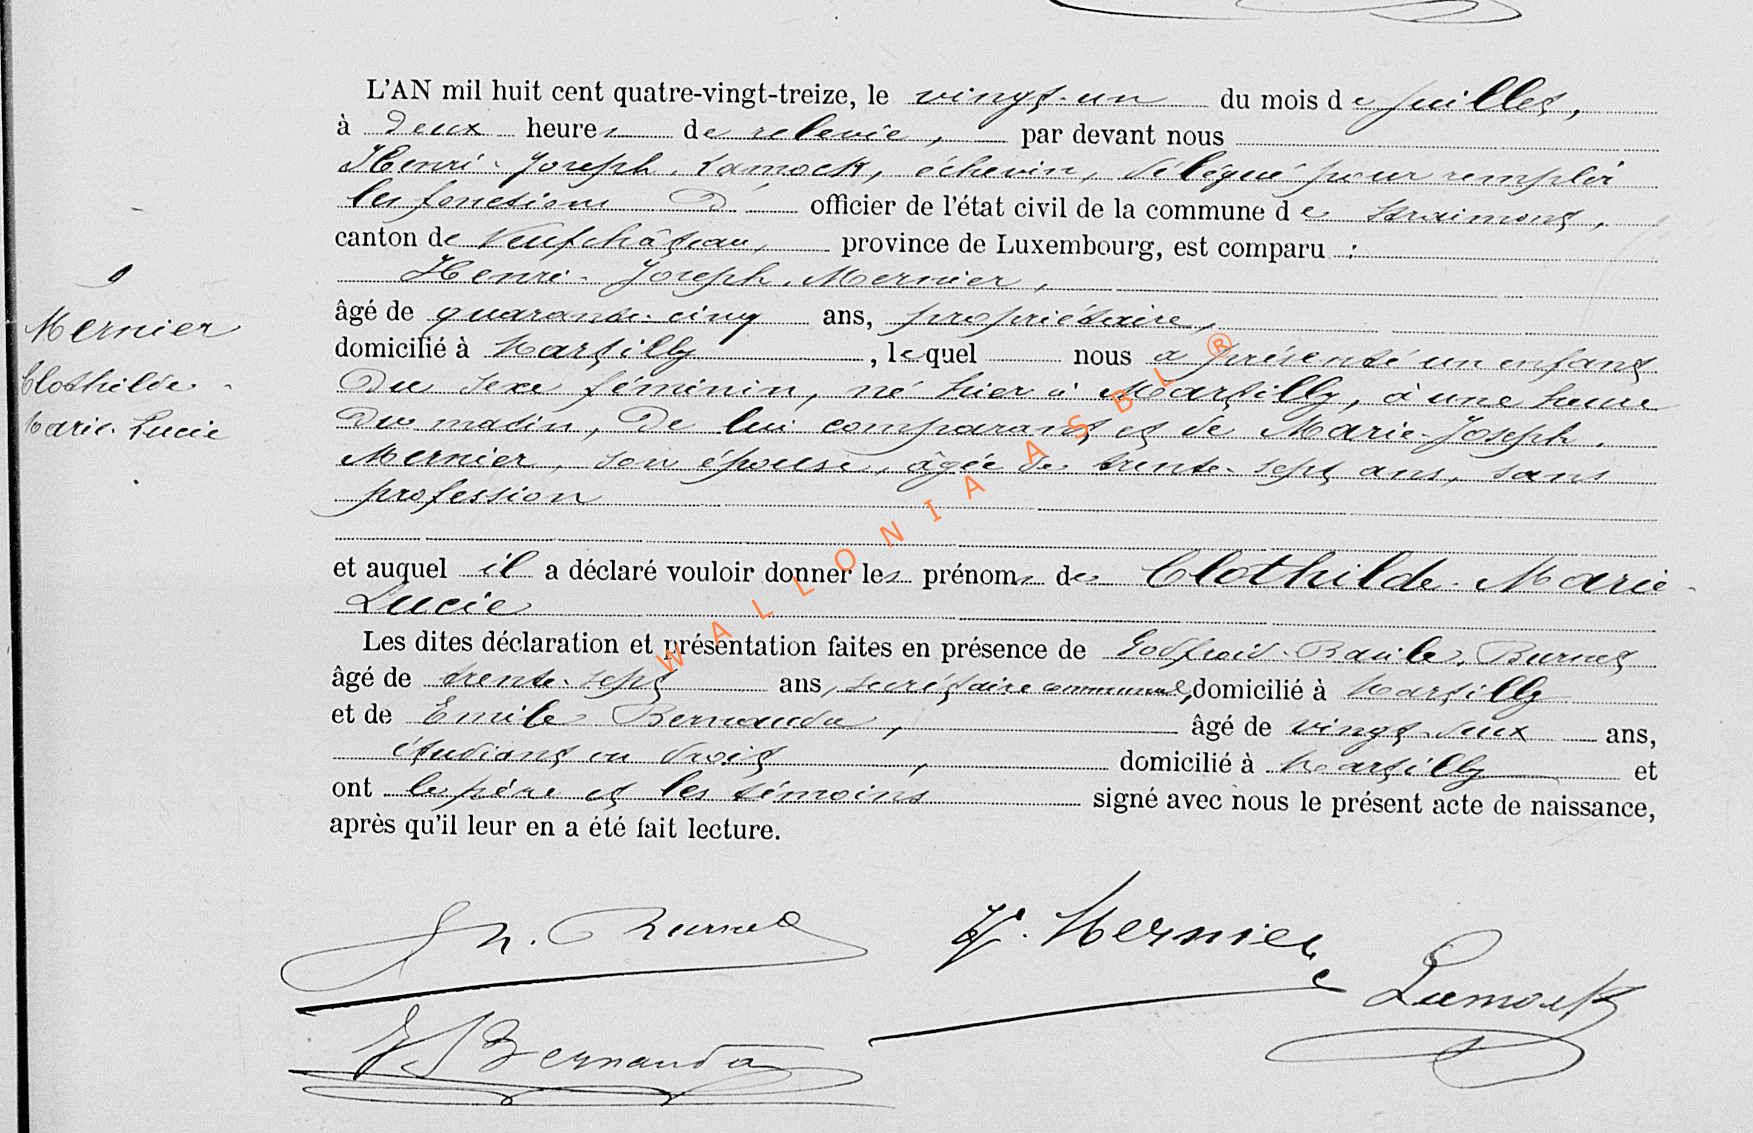 L'AN mil huit cent quatre-vingt-treize, le vingt-un du mois de Juillet,
à deux heures de relevée, par devant nous
Henri-Joseph Lamock, échevin, délégué pour remplir
les fonctions d officier de l'état civil de la commune de Straimont,
canton de Neufchâteau, province de Luxembourg, est comparu :
Henri-Joseph Mernier,
9
Mernier
Clothilde
Marie-Lucie
âgé de quarante-cinq ans, propriétaire,
domicilié à Martilly, lequel nous a présenté un enfant
du sexe féminin, né hier à Martilly, à une heure
du matin, de lui comparant et de Marie-Joseph
Mernier, son épouse, âgée de trente-sept ans, sans
profession
et auquel il a déclaré vouloir donner les prénoms de Clothilde-Marie-
Lucie
Les dites déclaration et présentation faites en présence de Godfroid Burnet
âgé de trente-sept ans, secrétaire communal, domicilié à Martilly
et de Emile Bernauda, âgé de vingt-deux ans,
étudiant en droit, domicilié à Martilly et
ont le père et les témoins signé avec nous le présent acte de naissance,
après qu'il leur en a été fait lecture.
Burnet
H. Mernier
Lamock
Bernauda
WALLONIA ASBL ®